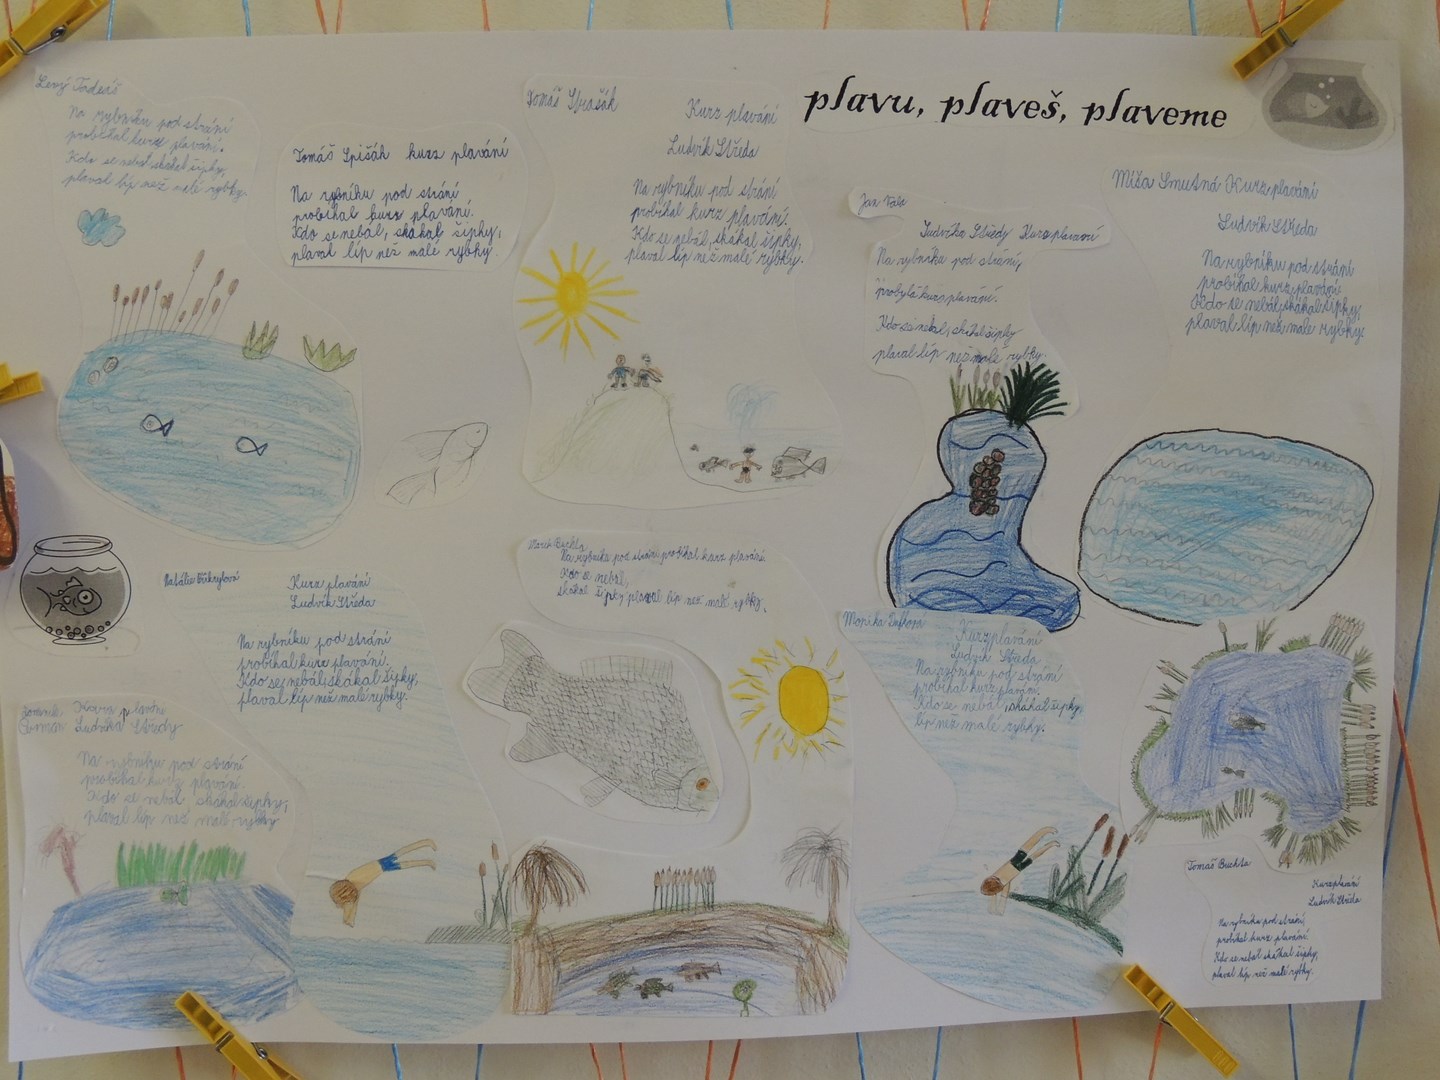 plavu, plaveš, plaveme
Levý Tadeáš
Na rybníku pod strání
probíhal kurz plavání.
Kdo se nebál, skákal šipky,
plaval líp než malé rybky.
Tomáš Spišák kurz plavání
Na rybníku pod strání
probíhal kurz plavání.
Kdo se nebál, skákal šipky,
plaval líp než malé rybky.
Tomáš
Kurz plavání
Ludvík Středa
Na rybníku pod strání
probíhal kurz plavání.
Kdo se nebál, skákal šipky,
plaval líp než malé rybky.
Jan
Ludvíka Středy Kurz plavaní
Na rybníka pod strání,
kurz plavání.
Kdo se nebal, skákal šipky
plaval líp než malé rybky.
Míša Smutná Kurz plavání
Ludvík Středa
Na rybníku pod strání
probíhal kurz plavání
Kdo se nebál, skákal šipky,
plaval líp než malé rybky.
Natálie Přikrylová
Kurz plavání
Ludvík Středa
Na rybníku pod strání
probíhal kurz plavání.
Kdo se nebál, skákal šipky,
plaval líp než malé rybky.
Marek Buchta
Na rybníka pod strání probíhal kurz plavání
Kdo se nebál,
skákal šipky plaval líp než malé rybky.
Monika
Kurz plavání
Ludvík Středa
Na rybníku pod strání
probíhal kurz plavání.
Kdo se nebál, skákal šipky,
líp než malé rybky.
Dominik plavání
Ludvíka Středy
Na rybníku pod strání
probíhal kurz plavání.
Kdo se nebál skákal šipky,
plaval líp než malé rybky
Tomáš Buchta
Kurz plavání
Ludvík Středa
Na rybníku pod strání
probíhal kurz plavání.
Kdo se nebál skákal šipky,
plaval líp než malé rybky.